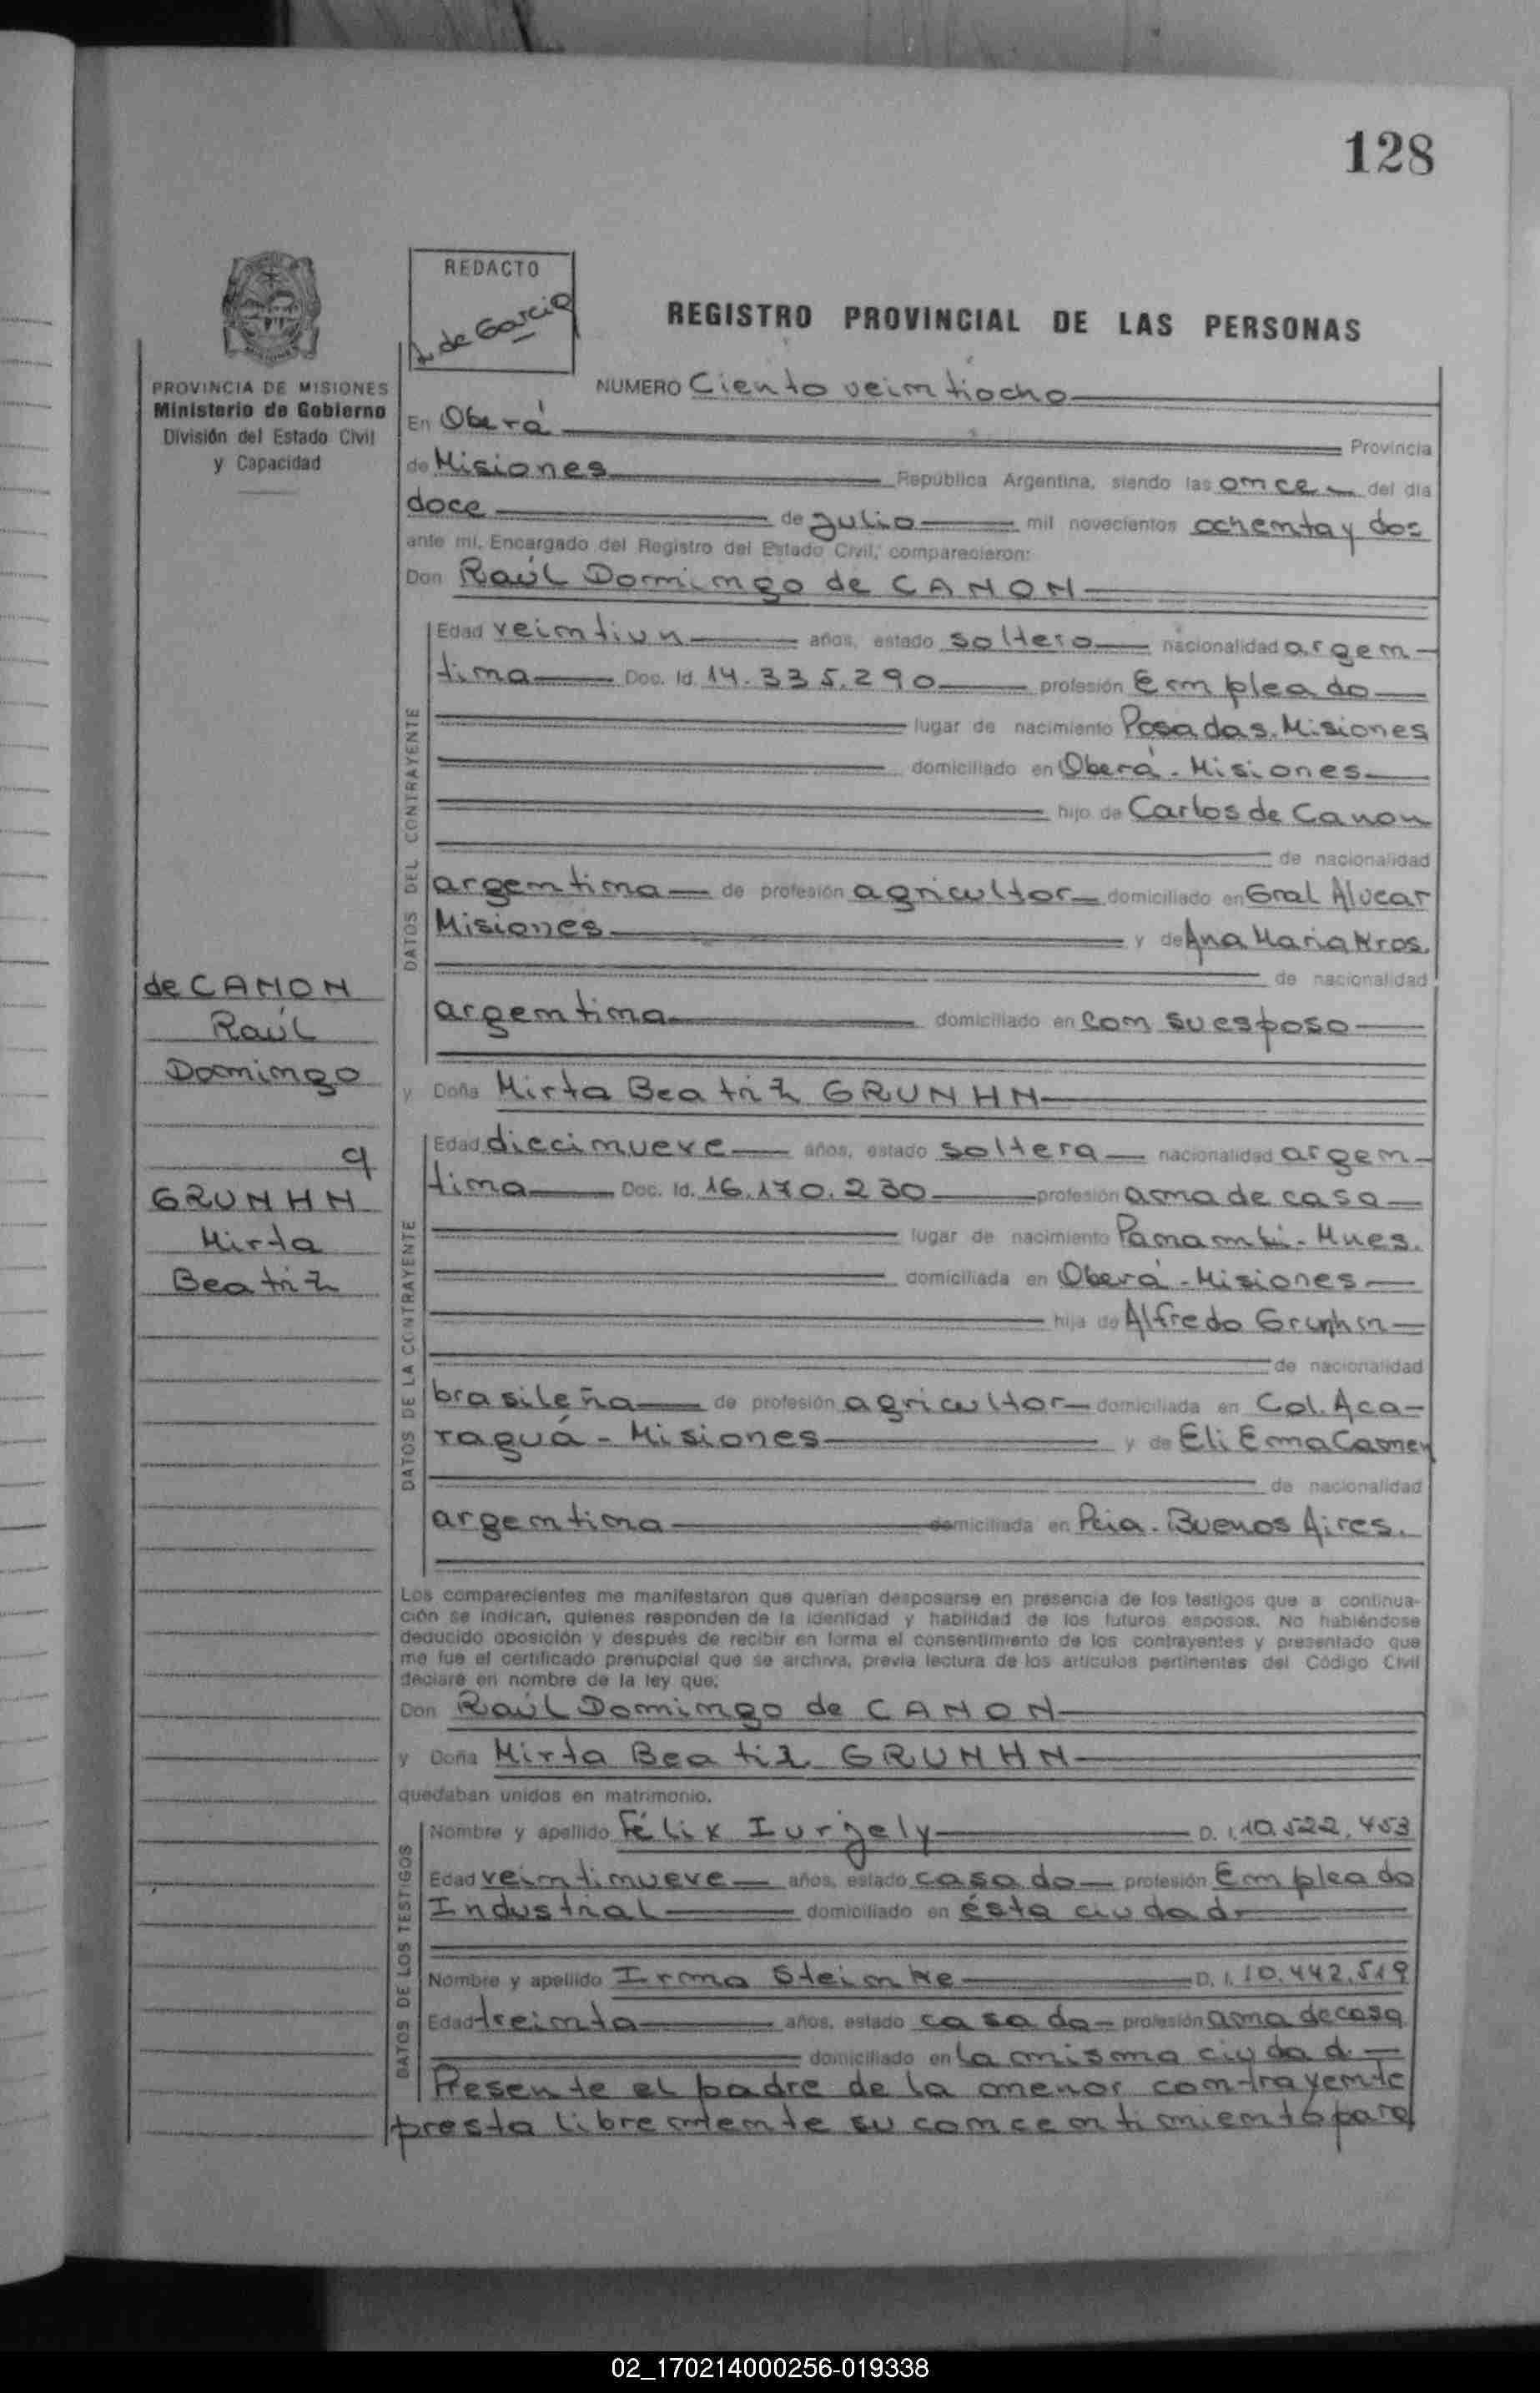 128
REDACTO
de Garcia
REGISTRO PROVINCIAL DE LAS PERSONAS
PROVINCIA DE MISIONES
Ministerio de Gobierno
División del Estado Civil
y Capacidad
NUMERO Ciento veintiocho
En Oberá Provincia
de Misiones República Argentina, siendo las once del día
doce de Julio mil novecientos ochenta y dos
ante mí, Encargado del Registro del Estado Civil, comparecieron:
Don Raúl Domingo de CANON
DATOS DEL CONTRAYENTE
Edad veintiun años, estado soltero nacionalidad argen-
tina Doc. Id. 14.335.290 profesión Empleado
lugar de nacimiento Posadas. Misiones
domiciliado en Oberá - Misiones
hijo de Carlos de Canon
de nacionalidad
argentina de profesión agricultor domiciliado en Gral Alvear
Misiones y de Ana Maria Kros.
de nacionalidad
argentina domiciliado en con su esposo
de CANON
Raúl
Domingo
y
GRUNHN
Mirta
Beatriz
y Doña Mirta Beatriz GRUNHN
DATOS DE LA CONTRAYENTE
Edad diecinueve años, estado soltera nacionalidad argen-
tina Doc. Id. 16.170.230 profesión ama de casa
lugar de nacimiento Panambi - Mnes.
domiciliada en Oberá - Misiones
hija de Alfredo Grunhn
de nacionalidad
brasileña de profesión agricultor domiciliada en Col. Aca-
raguá - Misiones y de Eli Erna
de nacionalidad
argentina domiciliada en Pcia. Buenos Aires.
Los comparecientes me manifestaron que querían desposarse en presencia de los testigos que a continua-
ción se indican, quienes responden de la identidad y habilidad de los futuros esposos. No habiéndose
deducido oposición y después de recibir en forma el consentimiento de los contrayentes y presentado que
me fue el certificado prenupcial que se archiva, previa lectura de los artículos pertinentes del Código Civil
declaré en nombre de la ley que:
Don Raúl Domingo de CANON
y Doña Mirta Beatiz GRUNHN
quedaban unidos en matrimonio.
DATOS DE LOS TESTIGOS
Nombre y apellido Félix Iurjely D. I. 10.522.453
Edad veintinueve años, estado casado profesión Empleado
Industrial domiciliado en ésta ciudad.
Nombre y apellido Irma Steinke D. I. 10.442.519
Edad treinta años, estado casada profesión ama de casa
domiciliado en la misma ciudad.
Presente el padre de la menor contrayente
presta libremente su concentimiento para
02_170214000256-019338